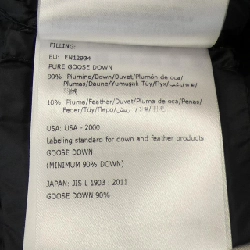 FILLING:
EU: EN12934
PURE GOOSE DOWN
90% Piumino/Down/Duvet/Plumón de oca/
10% Piuma/Feather/Duvet/Pluma de oca/Penas/
USA: USA - 2000
Labeling standard for down and feather products
GOOSE DOWN
(MINIMUM 90% DOWN)
JAPAN: JIS L 1903 : 2011
GOOSE DOWN 90%